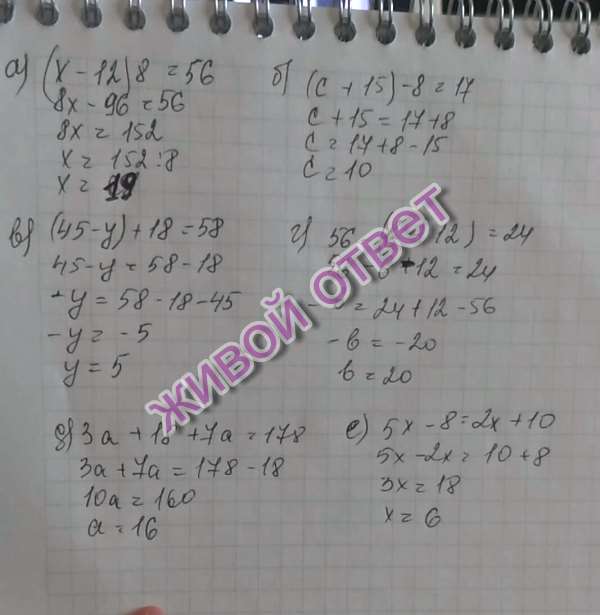 а) (x - 12) 8 = 56
8x - 96 = 56
8x = 152
x = 152 : 8
x = 19
б) (c + 15) - 8 = 17
c + 15 = 17 + 8
c = 17 + 8 - 15
c = 10
в) (45 - y) + 18 = 58
45 - y = 58 - 18
- y = 58 - 18 - 45
- y = - 5
y = 5
г) 56 - ( 12) = 24
12 = 24
= 24 + 12 - 56
- в = - 20
в = 20
д) 3a + 18 + 7a = 178
3a + 7a = 178 - 18
10a = 160
a = 16
е) 5x - 8 = 2x + 10
5x - 2x = 10 + 8
3x = 18
x = 6
ЖИВОЙ ОТВЕТ